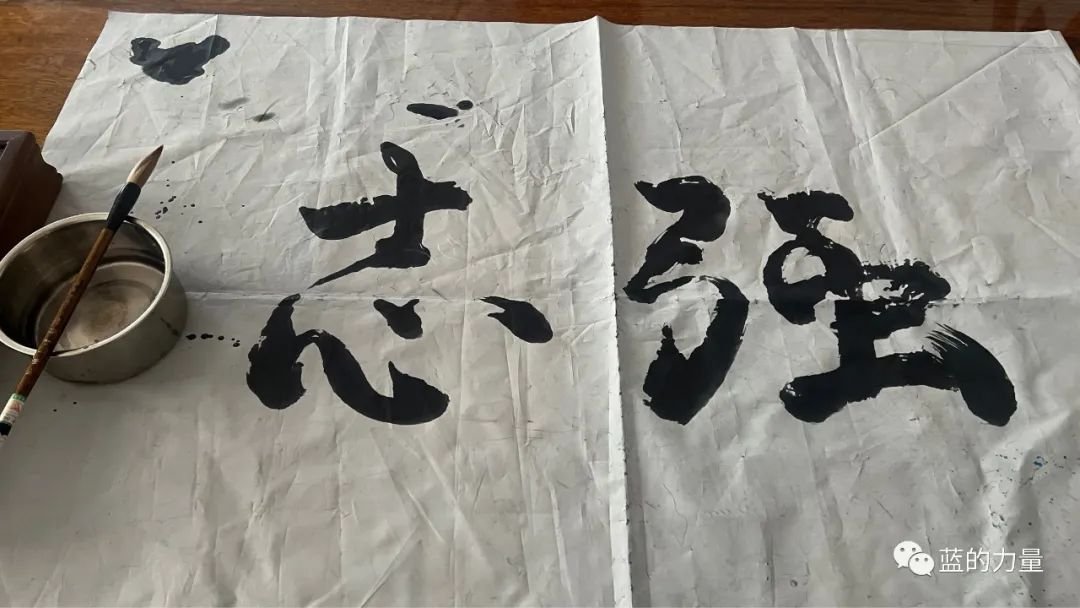 志强
蓝的力量